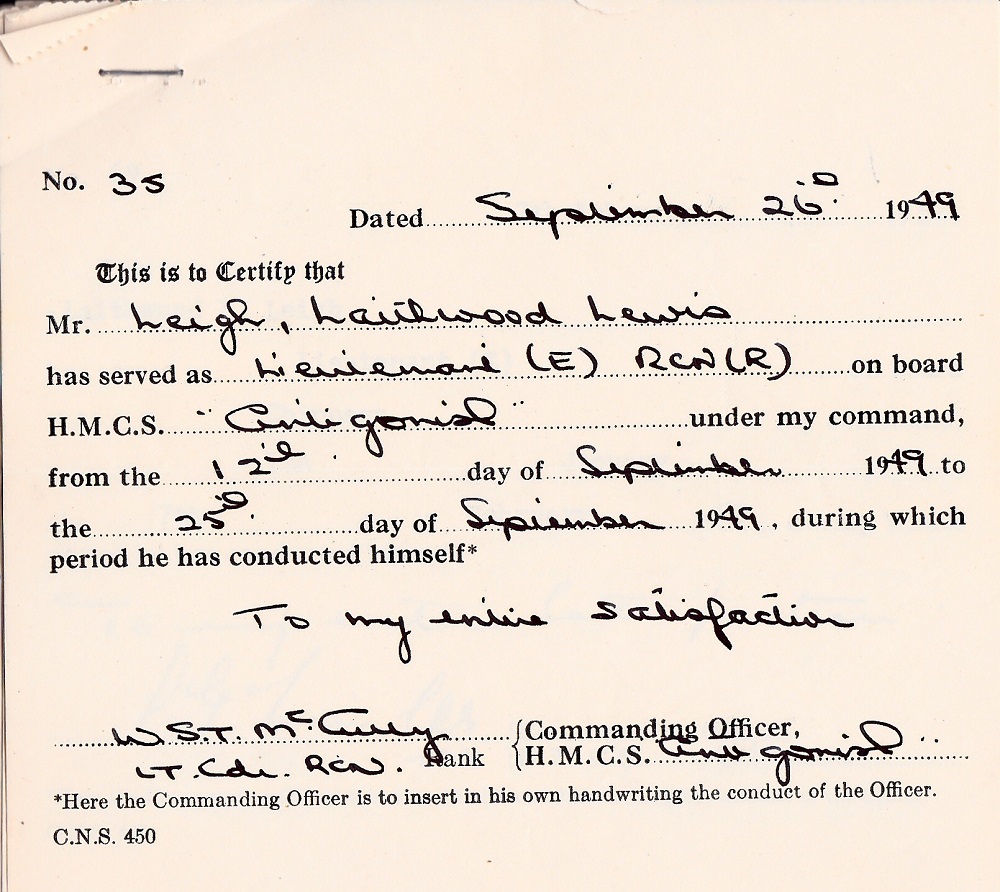 No. 35
Dated September 26th 1949
This is to Certify that
Mr. Leigh, Lewis
has served as Lieutenant (E) RCN(R) on board
H.M.C.S. "Antigonish" under my command,
from the 12th day of September 1949 to
the 25th day of September 1949, during which
period he has conducted himself*
To my entire satisfaction
W.S.T. McCully {Commanding Officer,
Lt. Cdr. RCN. Rank {H.M.C.S. Antigonish"
*Here the Commanding Officer is to insert in his own handwriting the conduct of the Officer.
C.N.S. 450